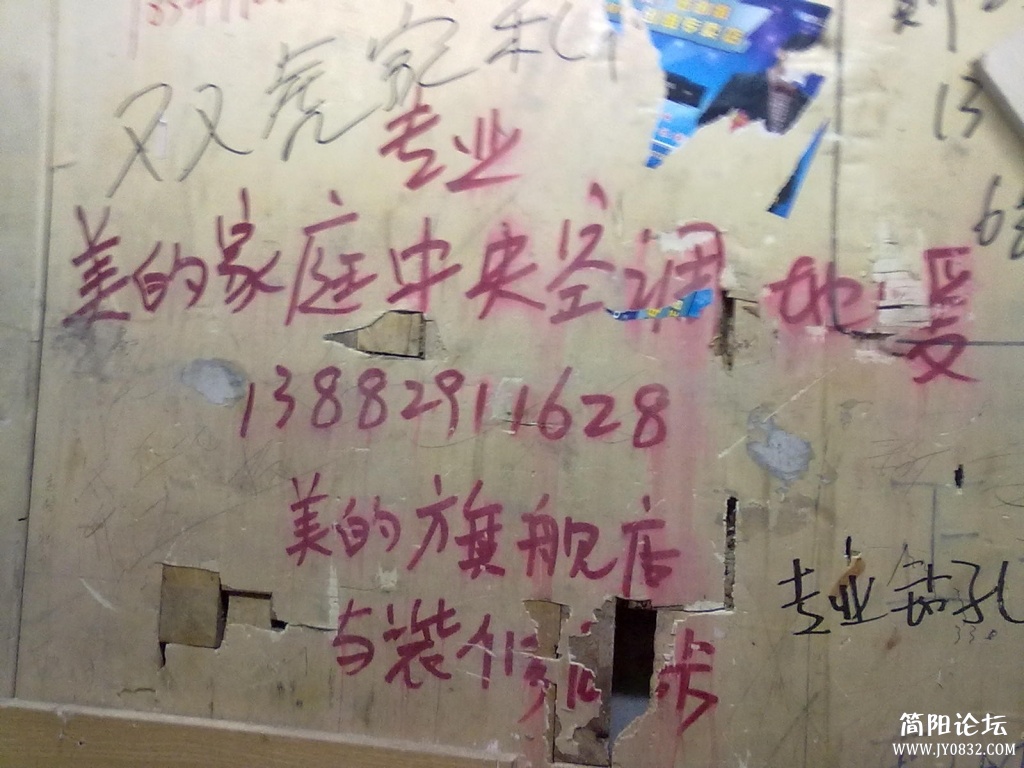 双虎家私
专业
美的家庭中央空调 地暖
13882911628
美的旗舰店
与装修同步
专业钻孔
13
简阳论坛
WWW.JY0832.COM